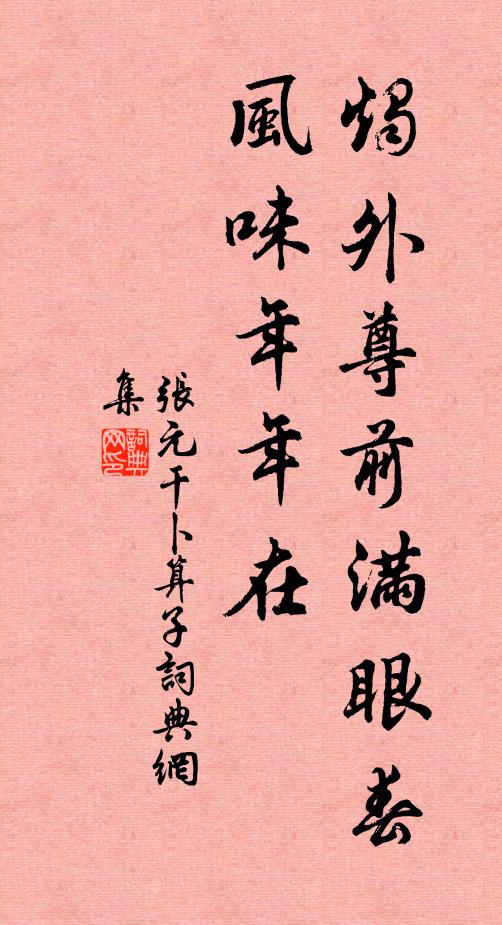 燭外尊前滿眼春
風味年年在
張元干卜算子詞典網
集
詞典網印